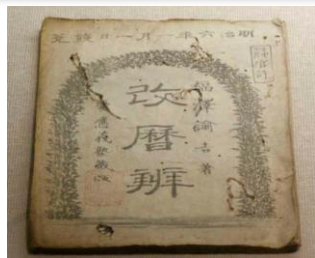 明治六年一月一日發兌
福澤諭吉著
改暦辨
慶應義塾藏版